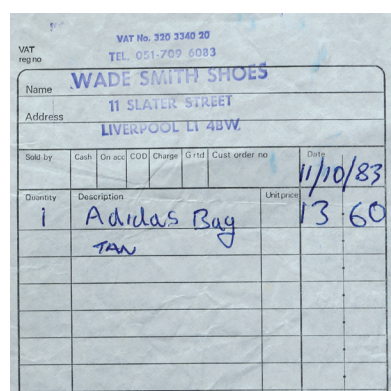 VAT No. 320 3340 20
VAT
reg no
TEL. 051-709 6083
WADE SMITH SHOES
Name
11 SLATER STREET
Address
LIVERPOOL L1 4BW.
Sold by Cash On acc COD Charge G rtd Cust order no Date
11/10/83
Quantity Description Unit price
1 Adidas Bag 13.60
TAN